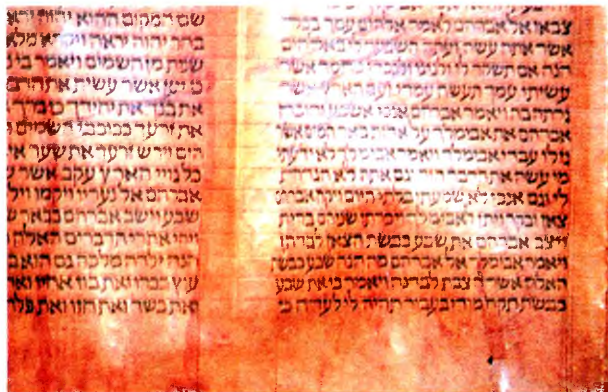 צבאו אל אברהם לאמר אלהים עמך בכל
אשר אתה עשה ועתה השבעה לי באלהים
הנה אם תשקר לי ולניני ולנכדי כחסד אשר
עשיתי עמך תעשה עמדי ועם הארץ אשר
גרתה בה ויאמר אברהם אנכי אשבע והוכח
אברהם את אבימלך על אדות באר המים אשר
גזלו עבדי אבימלך ויאמר אבימלך לא ידעתי
מי עשה את הדבר הזה וגם אתה לא הגדת
לי וגם אנכי לא שמעתי בלתי היום ויקח אברהם
צאן ובקר ויתן לאבימלך ויכרתו שניהם ברית
ויצב אברהם את שבע כבשת הצאן לבדהן
ויאמר אבימלך אל אברהם מה הנה שבע כבשת
האלה אשר הצבת לבדנה ויאמר כי את שבע
כבשת תקח מידי בעבור תהיה לי לעדה כי
שם המקום ההוא יהוה
בהר יהוה יראה ויקרא
שנית מן השמים ויאמר בי
כי יען אשר עשית את
את בנך את יחידך כי ברך
את זרעך ככוכבי השמים
הים וירש זרעך את שער
כל גויי הארץ עקב אשר
אברהם אל נעריו ויקמו
שבע וישב אברהם
ויהי אחרי הדברים האלה
הנה ילדה מלכה גם הוא
עוץ בכרו ואת בוז אחיו
ואת כשד ואת חזו ואת